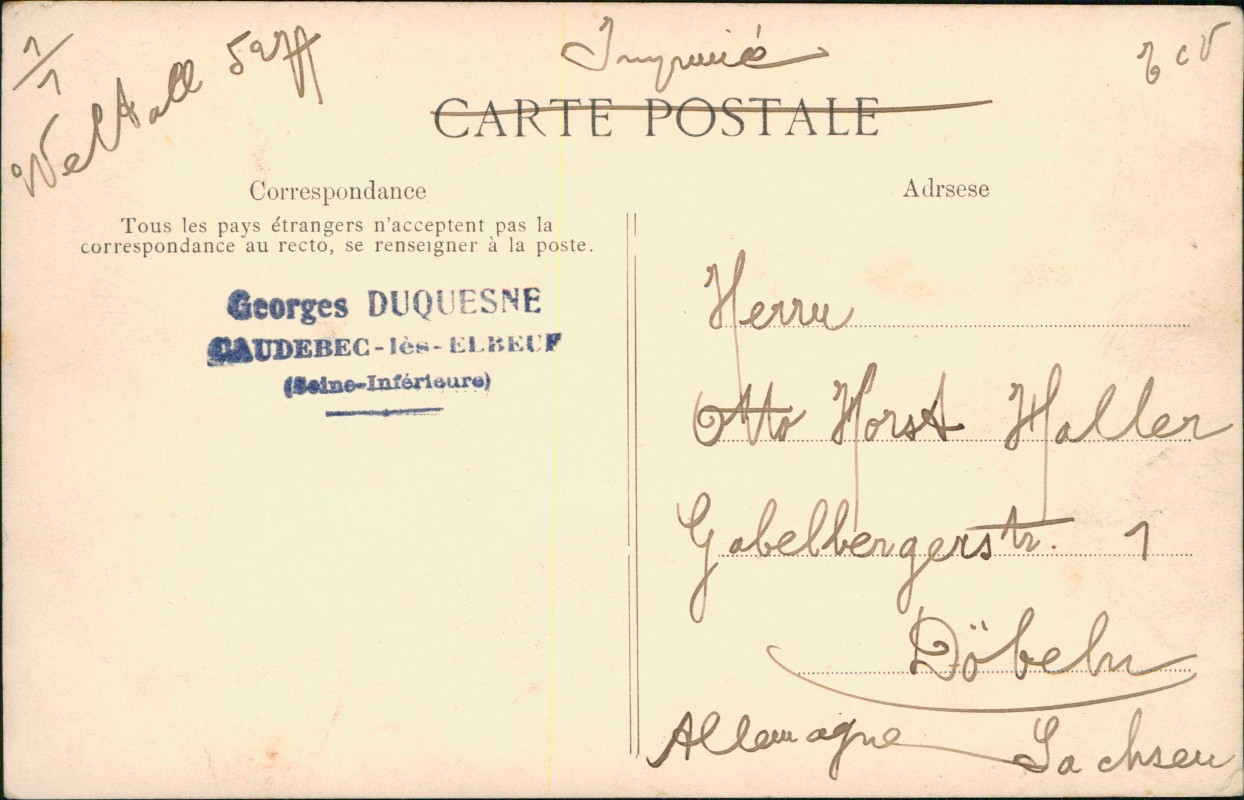 1/1
Weltall 5277
Imprimé
TCV
CARTE POSTALE
Correspondance
Tous les pays étrangers n'acceptent pas la
correspondance au recto, se renseigner à la poste.
Georges DUQUESNE
CAUDEBEC-lès-ELBEUF
(Seine-Inférieure)
Adrsese
Herrn
Otto Horst Haller
Gabelbergerstr. 1
Döbeln
Allemagne Sachsen